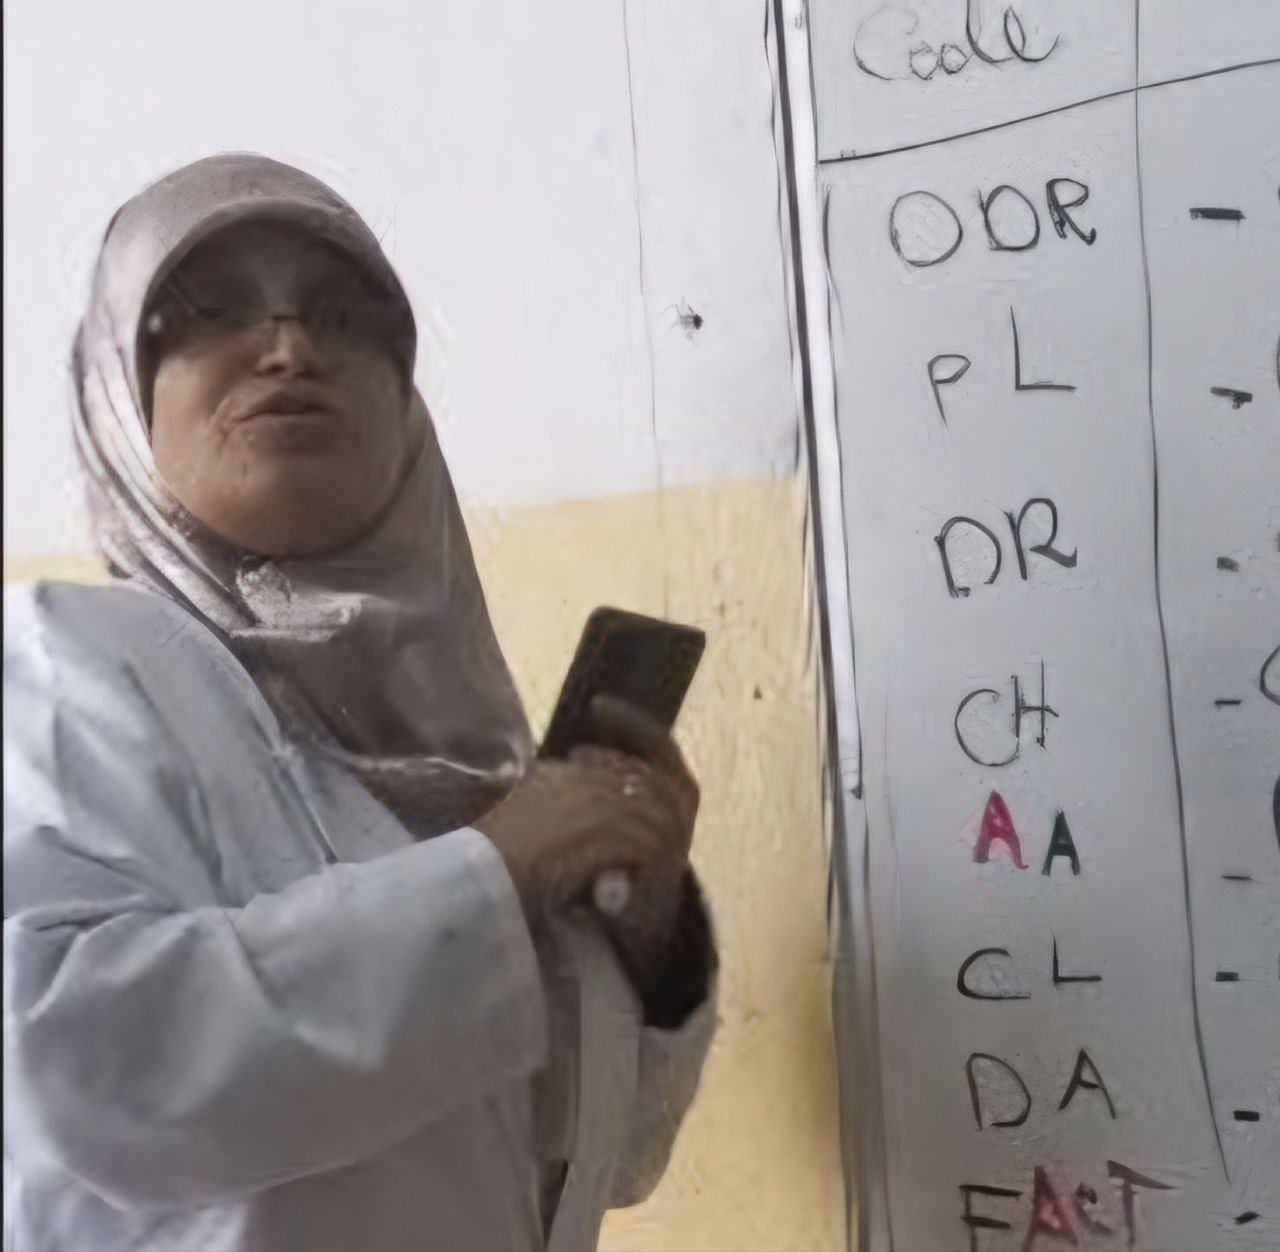 Code
ODR -
PL -
DR -
CH -
AA -
CL -
DA -
FAcT -